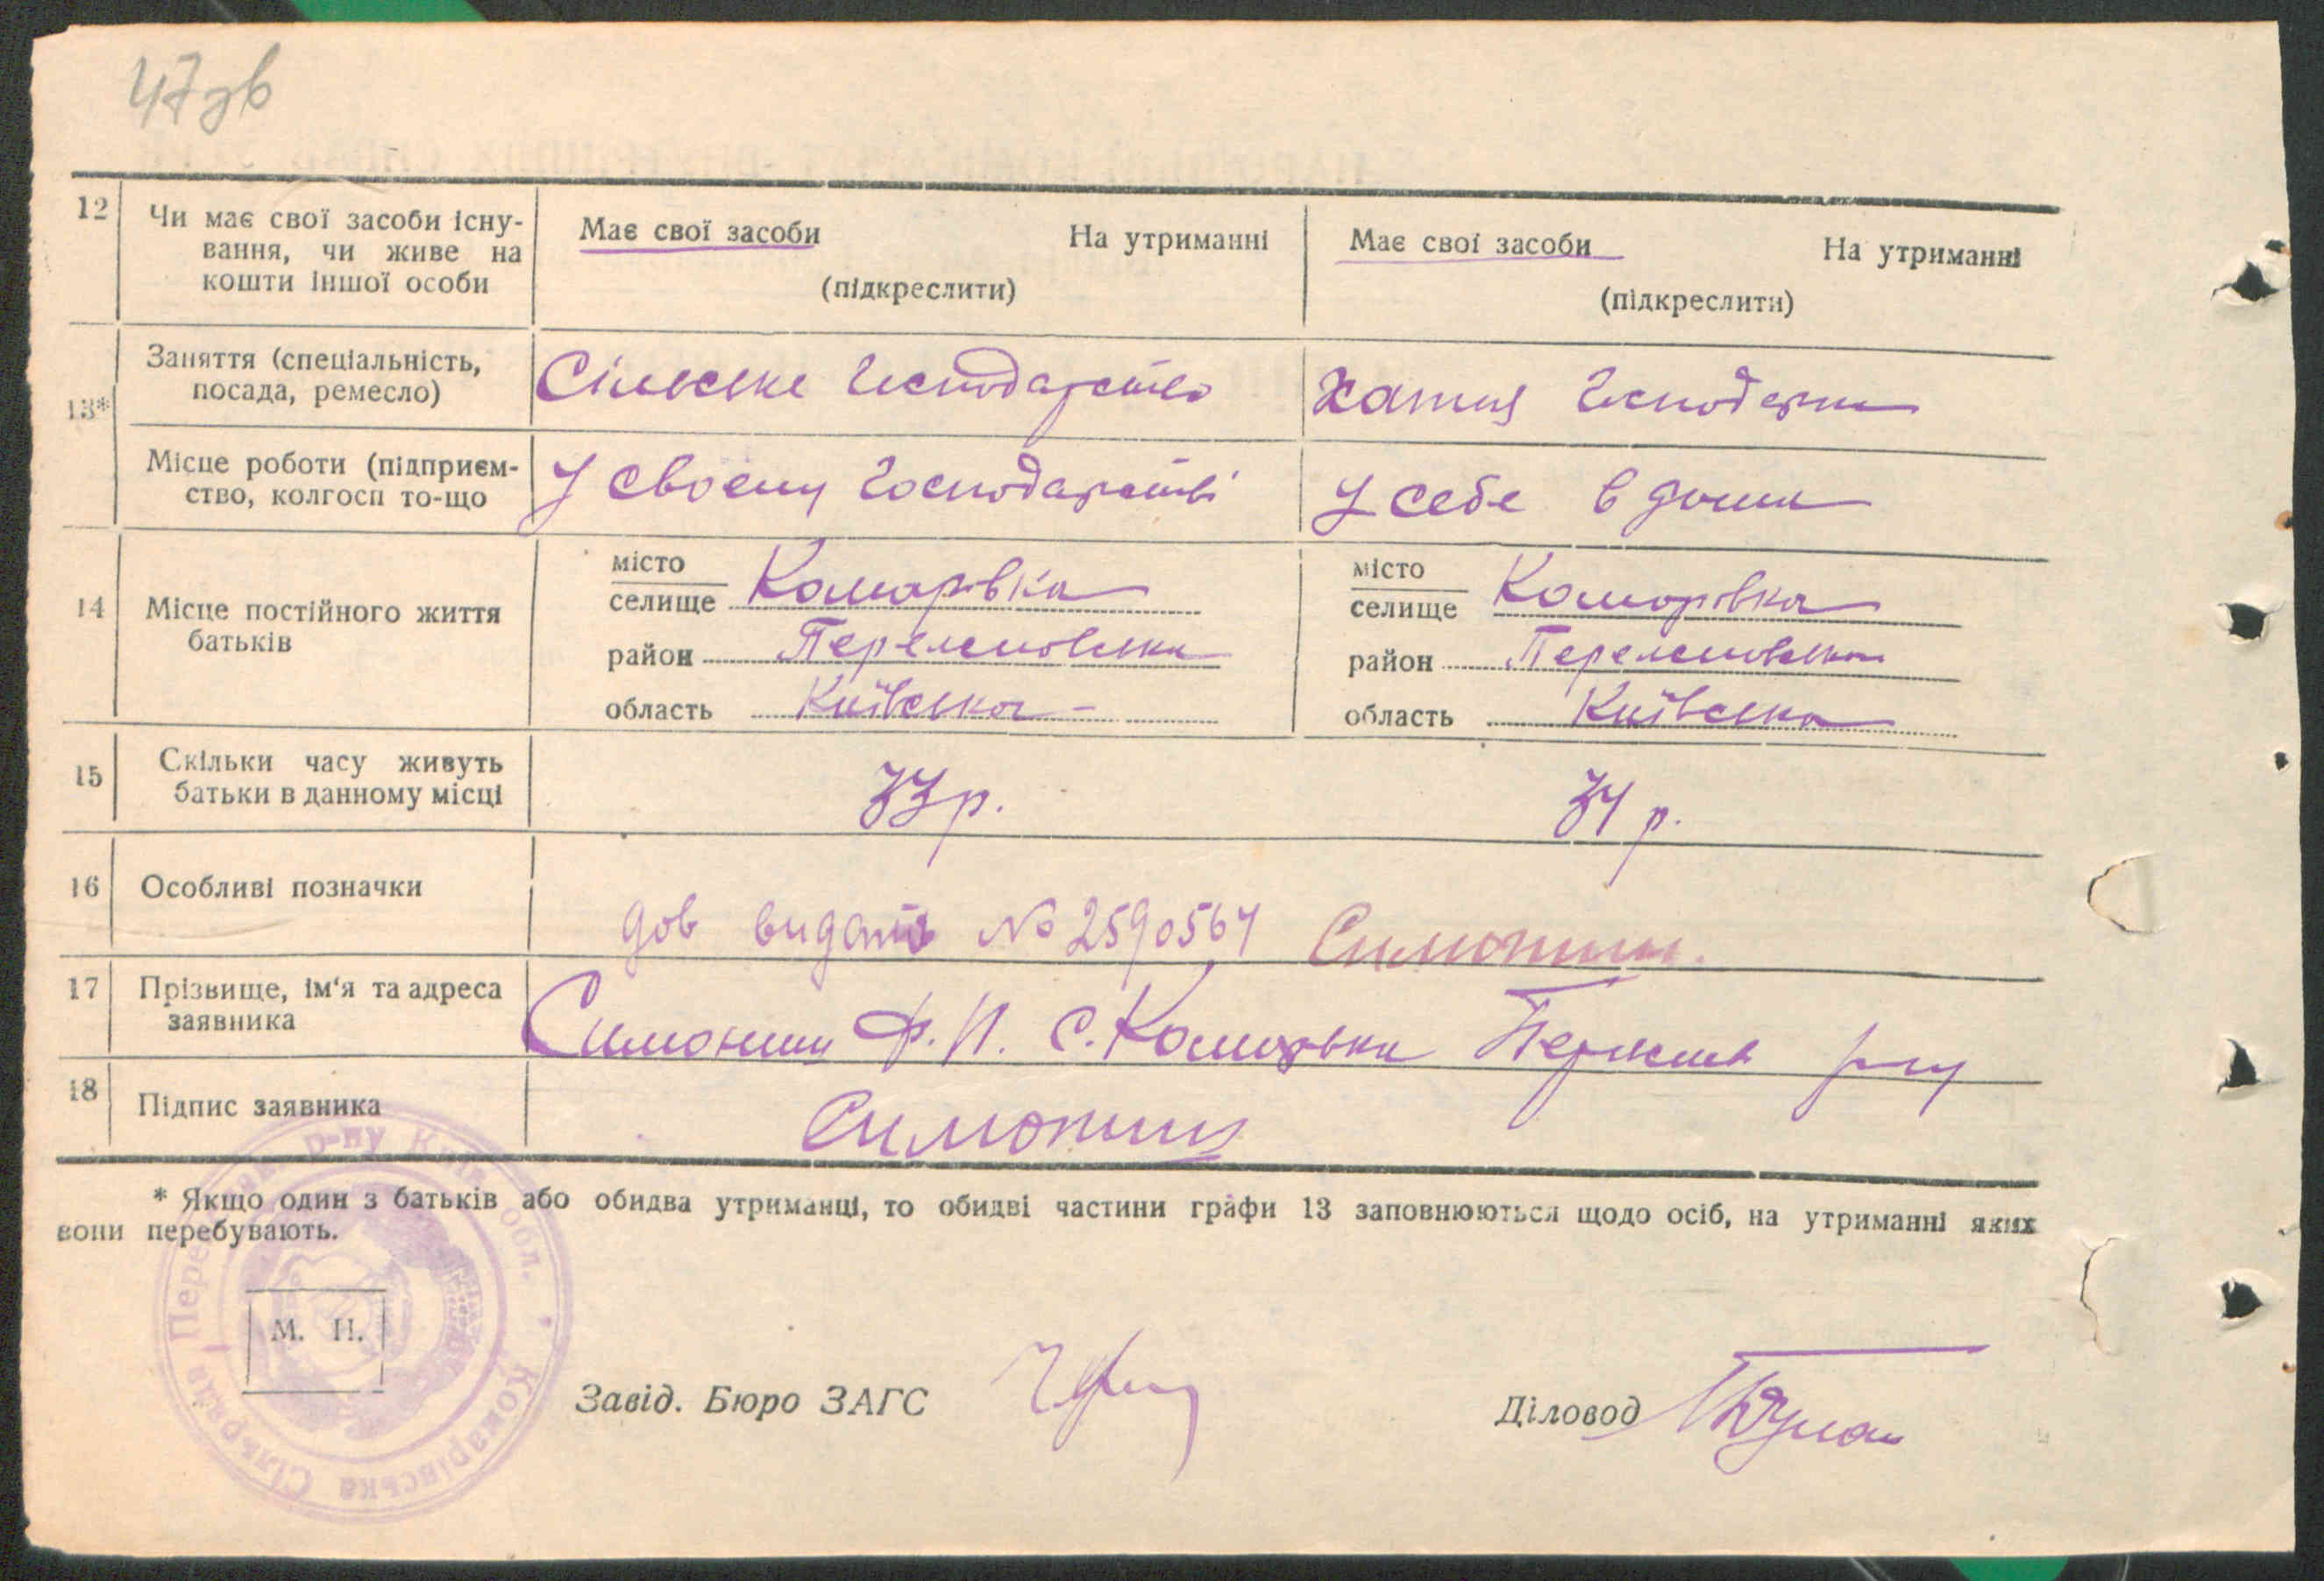 47зв
12 Чи має свої засоби існу-
вання, чи живе на
кошти іншої особи
Має свої засоби На утриманні
(підкреслити)
Має свої засоби На утриманні
(підкреслити)
13* Заняття (спеціальність,
посада, ремесло)
Сільське господарство
Хатня
Місце роботи (підприєм-
ство, колгосп то-що
У своєму господарстві
У себе в доми
14 Місце постійного життя
батьків
місто
селище Комарівка
район
область Київська
місто
селище Комарівка
район
область Київська
15 Скільки часу живуть
батьки в данному місці
33 р.
34 р.
16 Особливі позначки
дов видано № 2590564
17 Прізвище, ім'я та адреса
заявника
Ф. И. с. Комарівка
18 Підпис заявника
* Якщо один з батьків або обидва утриманці, то обидві частини графи 13 заповнюються щодо осіб, на утриманні яких
вони перебувають.
М. П.
р-ну обл. Комарівська Сільрада
Завід. Бюро ЗАГС
Діловод